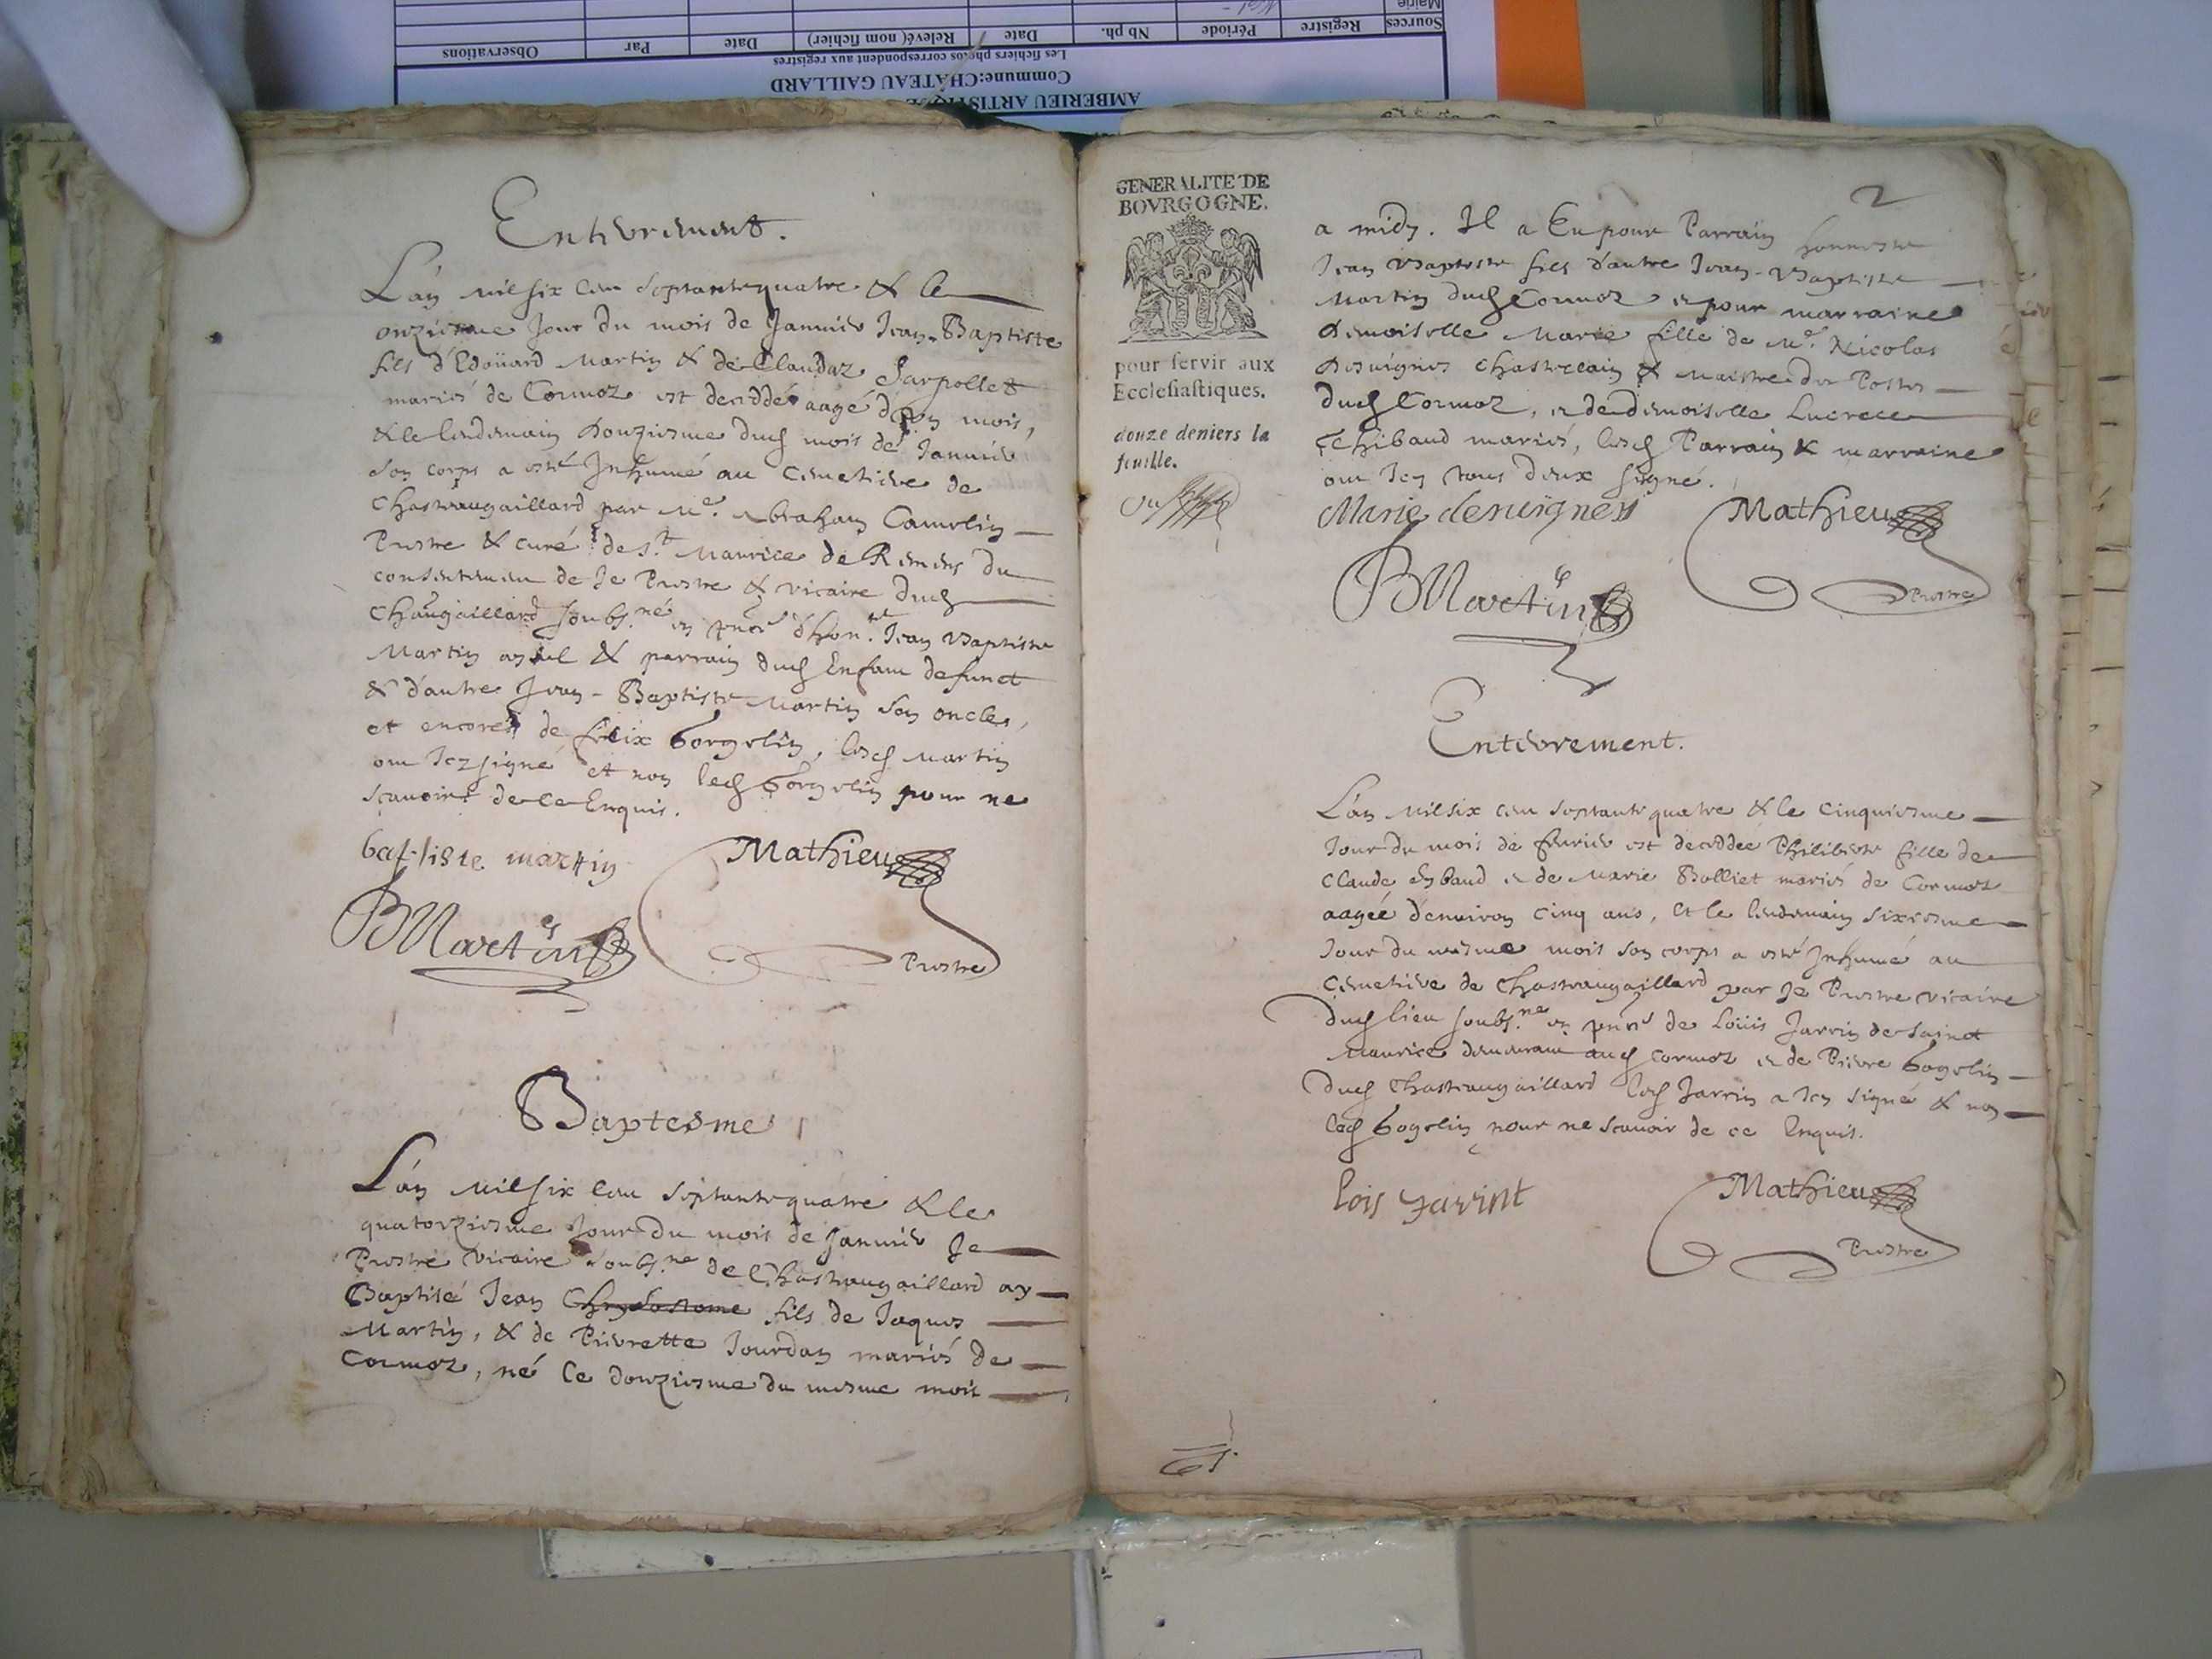 AMBERIEU ARTISTIQUE
Commune:CHÂTEAU GAILLARD
Les fichiers photos correspondent aux registres
Sources Registre Période Nb ph. Date Relevé( nom fichier) Date Par Observations
Mairie
Enterrement.
L'an mil six cen septantequatre & le
onziesme jour du mois de Janvier Jean-Baptiste
fils d'Edoüard Martin & de Claudaz Sarpollet
mariés de Cormoz est deceddé aagé d'un mois,
& le lendemain douziesme dud mois de Janvier
son corps a esté Inhumé au cemetiere de
Chasteaugaillard par Mre. Abraham Camelin
Prestre & curé de St. Maurice de Remens du
consentemen de Je Prestre & vicaire dud
Chaugaillard soubs.né en pnce d'hon.te Jean Baptiste
Martin ayeul & parrain dud Enfant defunct
& d'autre Jean-Baptiste Martin son oncle,
et encores de felix borgelin, lesd Martin
on Icy signé et non led borgelin pour ne
scavoir de ce Enquis.
batiste martin
Mathieu
BMartin
Prestre
Baptesme
L'an mil six cen septantequatre & le
quatorziesme jour du mois de Janvier Je
Prestre vicaire soubs.né de Chasteaugaillard ay
Baptisé Jean Chrysostome fils de Jaques
Martin, & de Pierrette Jourdan mariés de
Cormoz, né le douziesme du mesme mois
GENERALITE DE
BOVRGOGNE.
pour servir aux
Ecclesiastiques.
douze deniers la
feuille.
2
a midy. Il a Eu pour Parrain honneste
Jean Baptiste fils d'autre Jean-Baptiste
Martin dud Cormoz et pour marraine
Demoiselle Marie fille de Mre. Nicolas
Desvignes chastelain & Maistre des Postes
dud Cormoz, et de demoiselle Lucrece
Thibaud mariés, lesd Parrain & marraine
on Icy tous deux signé.
Marie desvignes
Mathieu
BMartin
Prestre
Enterrement.
L'an mil six cen septante quatre & le cinquiesme
jour du mois de fevrier est deceddée Philiberte fille de
Claude Eybaud et de Marie Bolliet mariés de Cormoz
aagée d'environ cinq ans, et le lendemain sixiesme
jour du mesme mois son corps a esté Inhumé au
cemetiere de Chasteaugaillard par Je Prestre vicaire
dud lieu soubs.né en pnce de Loüis Jarrin de Sainct
Maurice demeurant aud Cormoz et de Pierre bogelin
dud Chasteaugaillard led Jarrin a Icy signé & non
led bogelin pour ne scavoir de ce Enquis.
lois jarint
Mathieu
Prestre